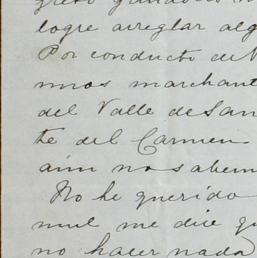 logre arreglar alg
Por conducto de
mos marchant
del Valle de San
te del Carmen
aún no sabem
No he querido
mul me dice qu
no hacer nada